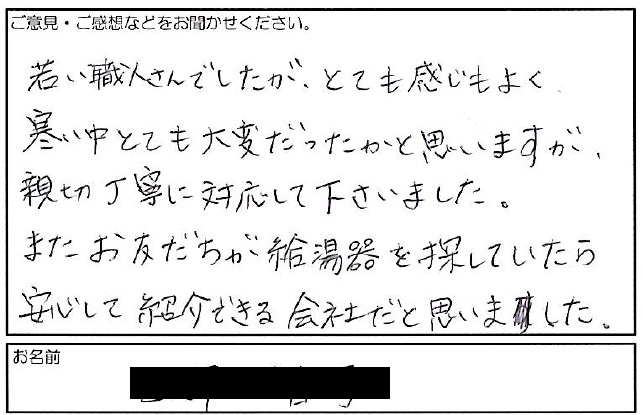 ご意見・ご感想などをお聞かせください。
若い職人さんでしたが、とても感じもよく
寒い中とても大変だったかと思いますが、
親切丁寧に対応して下さいました。
またお友だちが給湯器を探していたら
安心して紹介できる会社だと思いました。
お名前